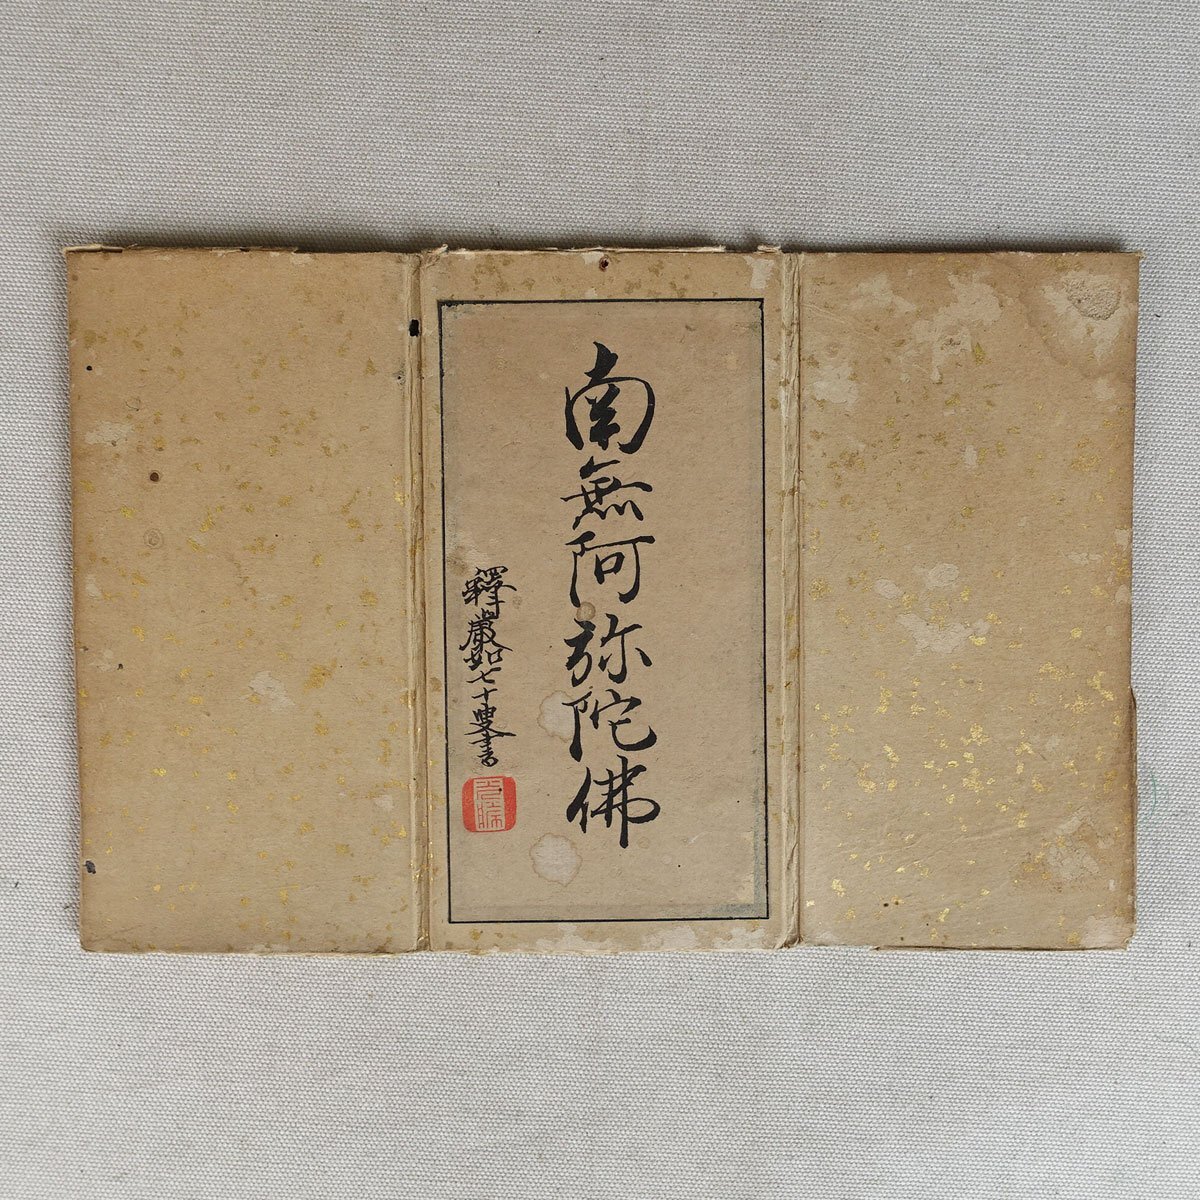 南無阿弥陀佛
釋嚴如七十叟書